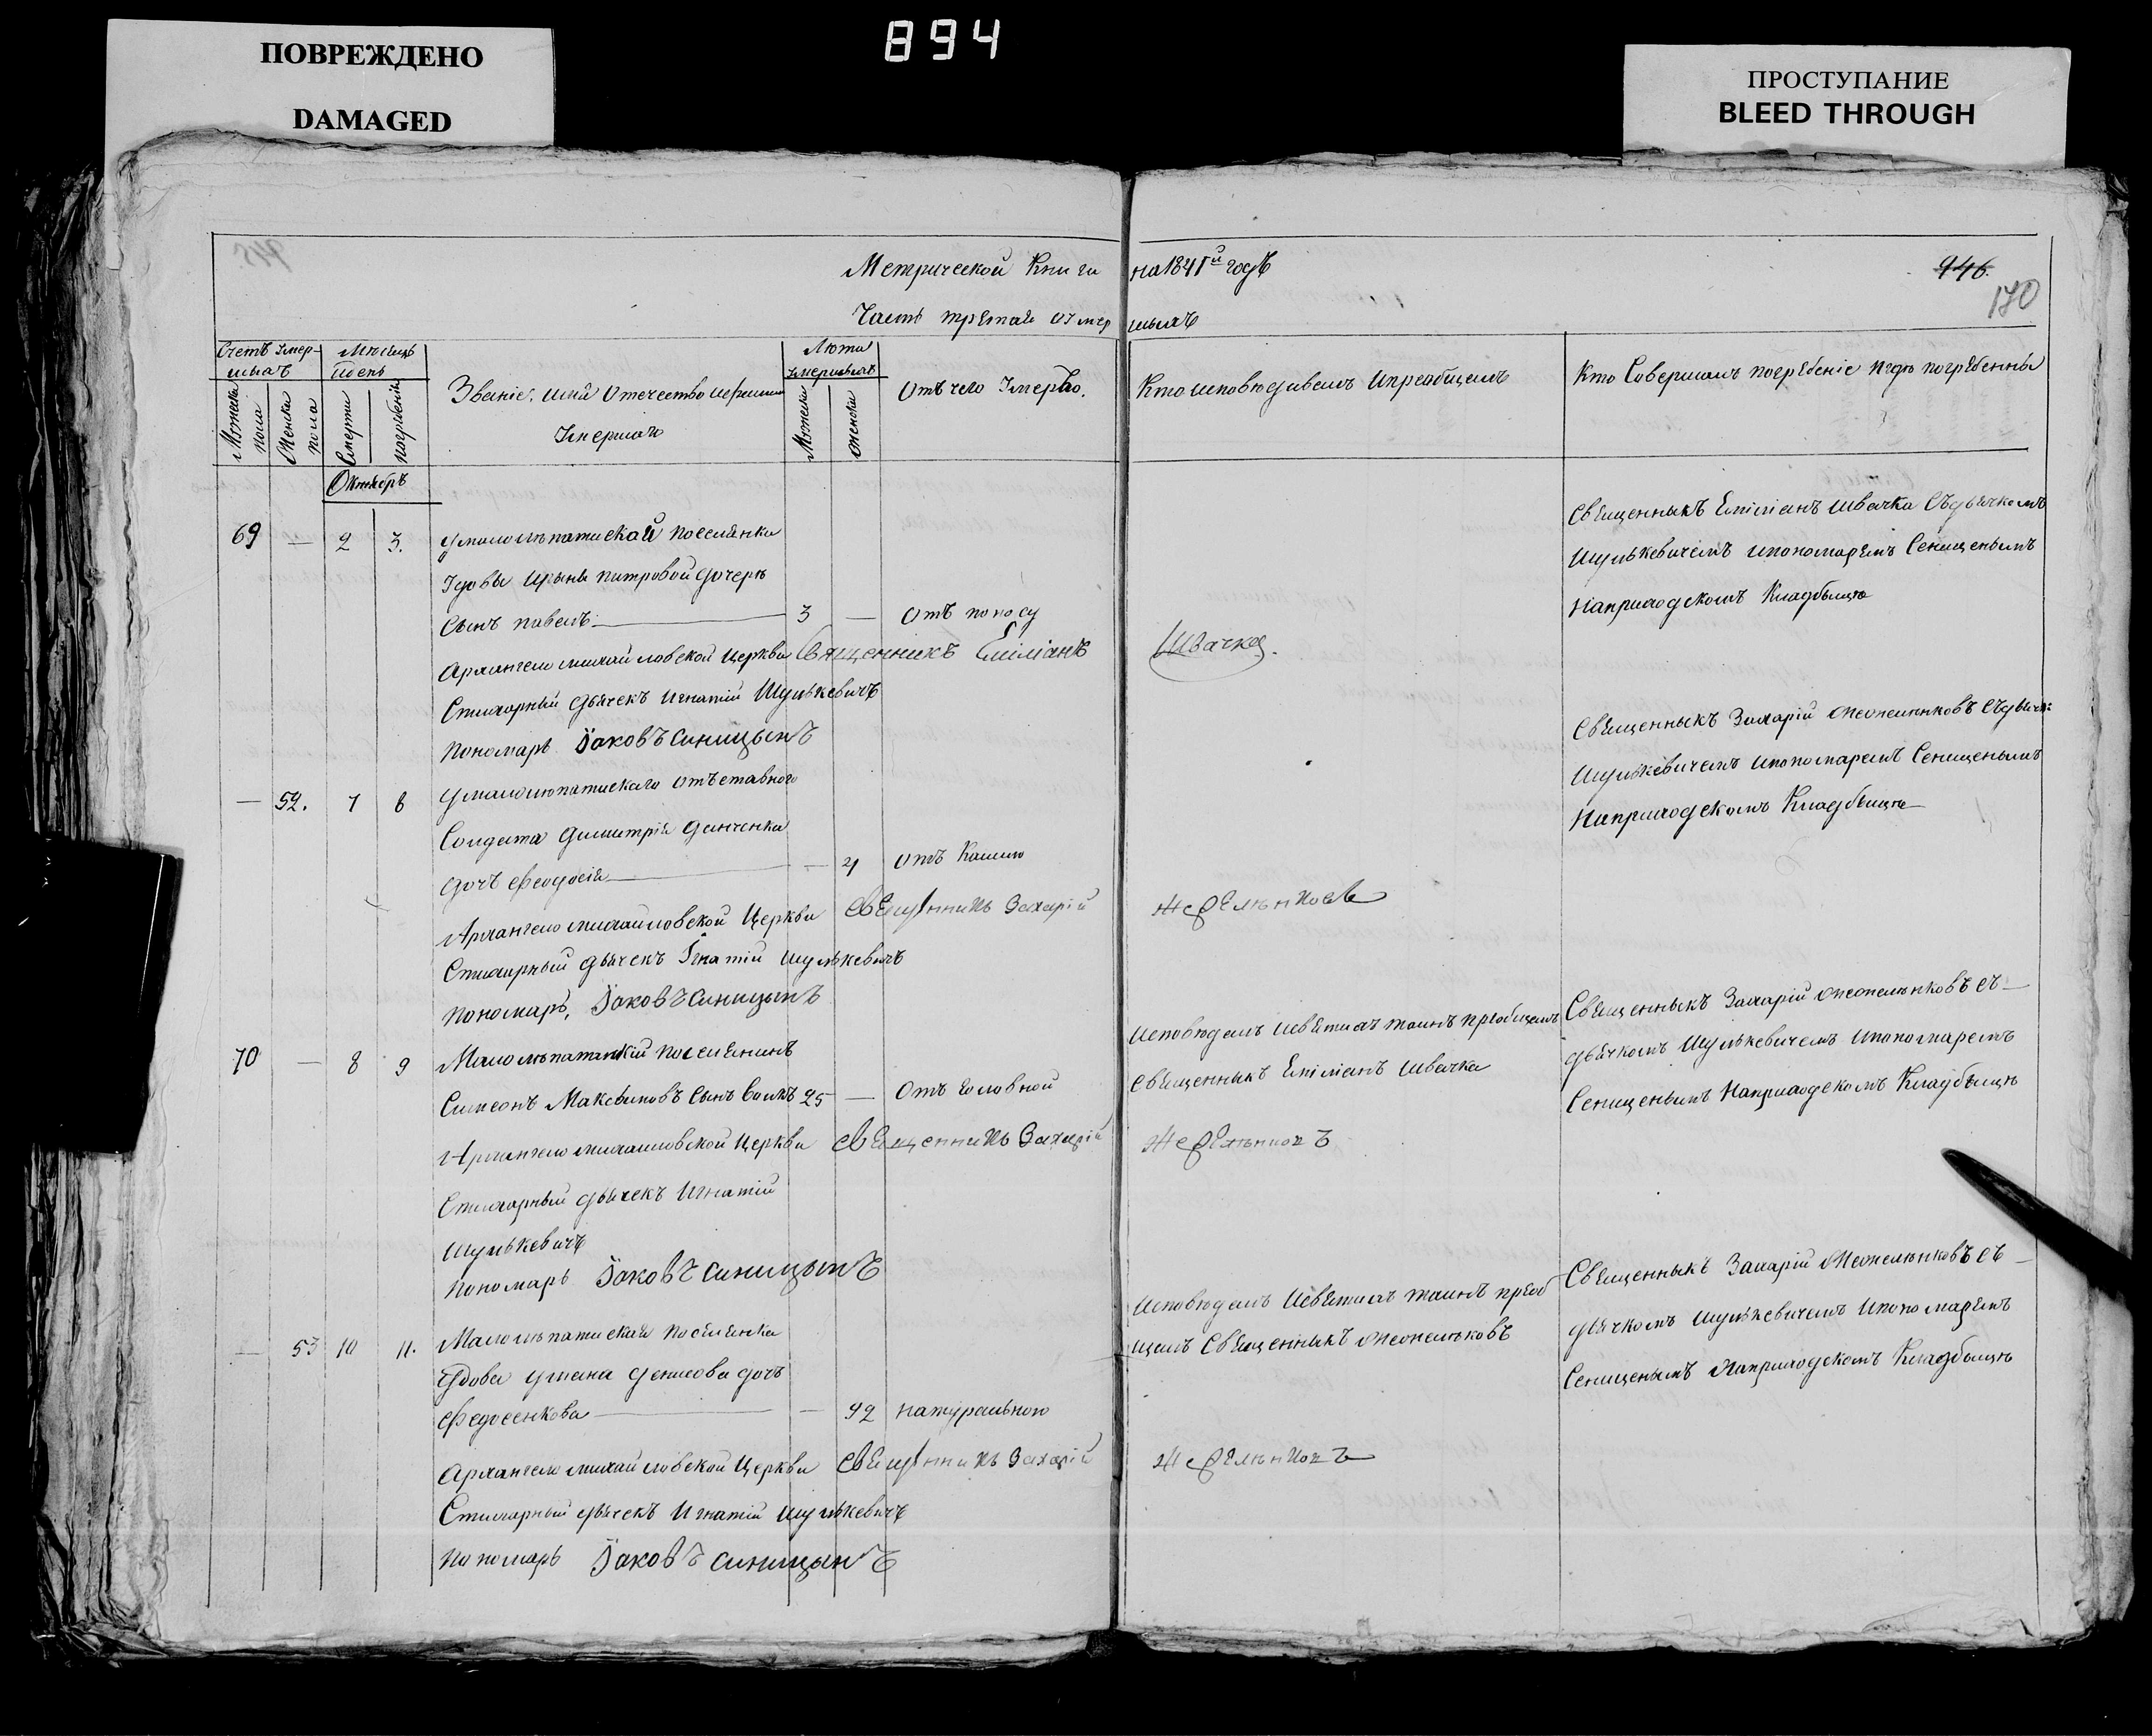 ПОВРЕЖДЕНО
DAMAGED
894
ПРОСТУПАНИЕ
BLEED THROUGH
Метрической Книги на 1841й годъ
946.
170
Часть третая Умер шихъ
Счетъ Умер-
шихъ
Мужеска
пола
Женска
пола
Месецъ
Идень
Смерти
погребенія
Званіе. имя Отечество
Умершаго
Лета
Умершихъ
Мужеска
Женска
Отъ чего Умерло.
Кто исповедивалъ Ипреобщалъ
Кто Совершалъ погребеніе Игде погребенны
Октябръ
69 — 2 3.
поселянки
Удовы Ирыны питровой дочери
Сынъ павелъ — 3 — Отъ поносу
Священныкъ Емілианъ Швачка Съдьячкомъ
Шулькевичемъ ипономаремъ Сениценымъ
Наприходскомъ Кладбыще
Архангело михайловской Церкви Священникъ Емиліанъ Швачка.
Стихарный дьячекъ Игнатій Шулькевичъ
Пономарь Іаковъ Синицынъ
— 52. 7 8
отъставного
Солдата Димитрія Данченка
дочъ Феодосія — 4 Отъ Кашлю
Священныкъ Захарій Съдьячк:
Шулькевичемъ ипономаремъ Сениценымъ
Наприходскомъ Кладбыще
Архангело михайловской Церкви Священникъ Захарій
Стихарный дьячекъ Ігнатій Шулькевичъ
пономарь, Іаковъ Синицынъ
70 — 8 9
поселянинъ
Симеонъ Максимовъ Сынъ 25 — Отъ Головной
Исповедалъ Исвятихъ таинъ преобщалъ
Священныкъ Емілианъ Швачка
Священныкъ Захарій Съ
дьячкомъ Шулькевичемъ Ипономаремъ
Сениценымъ Наприходскомъ Кладбыще
Архангело михайловской Церкви Священникъ Захарій
Стихарный дьячекъ Игнатій
Шулькевичъ
Пономарь Іаковъ Синицынъ
— 53 10 11.
поселянка
Удова Уляна Денисова дочъ
Федосенкова — 92 натуральною
Исповедалъ Исвятихъ таинъ преоб
щалъ Священныкъ
Священныкъ Захарій Съ
дьячкомъ Шулькевичемъ Ипономаремъ
Сеницынымъ Наприходскомъ Кладбыще
Архангело михайловской Церкви Священникъ Захарій
Стихарный дьячекъ Игнатій Шулькевичъ
Пономарь Іаковъ Синицынъ